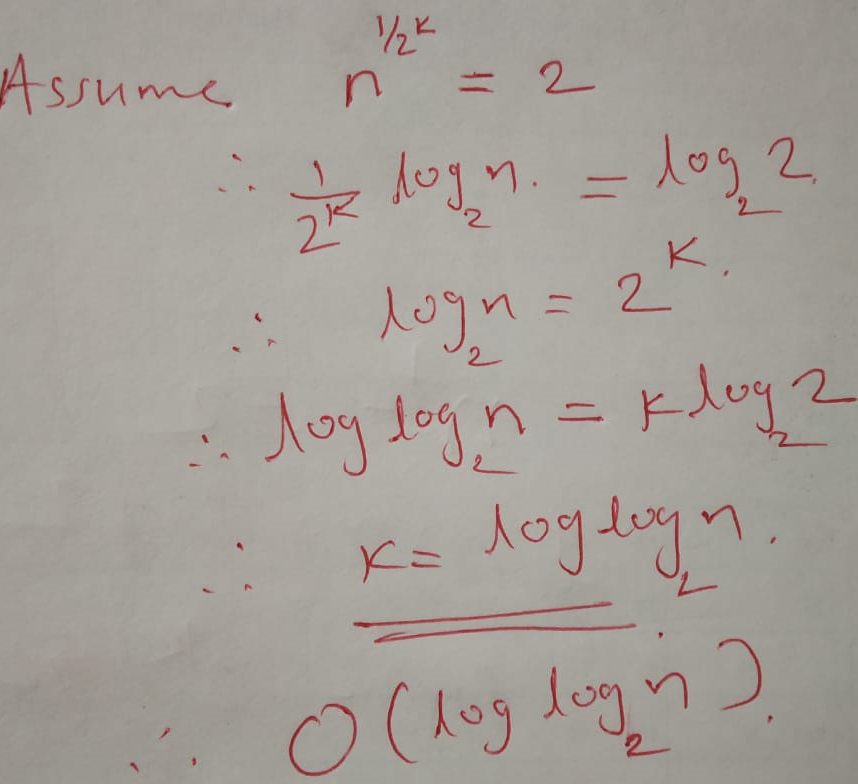 Assume n^{1/2^K} = 2
∴ 1/2^K log₂ n. = log₂ 2.
∴ log₂ n = 2^K.
∴ log log₂ n = K log₂ 2
∴ K = log log₂ n.
∴ O(log log₂ n).